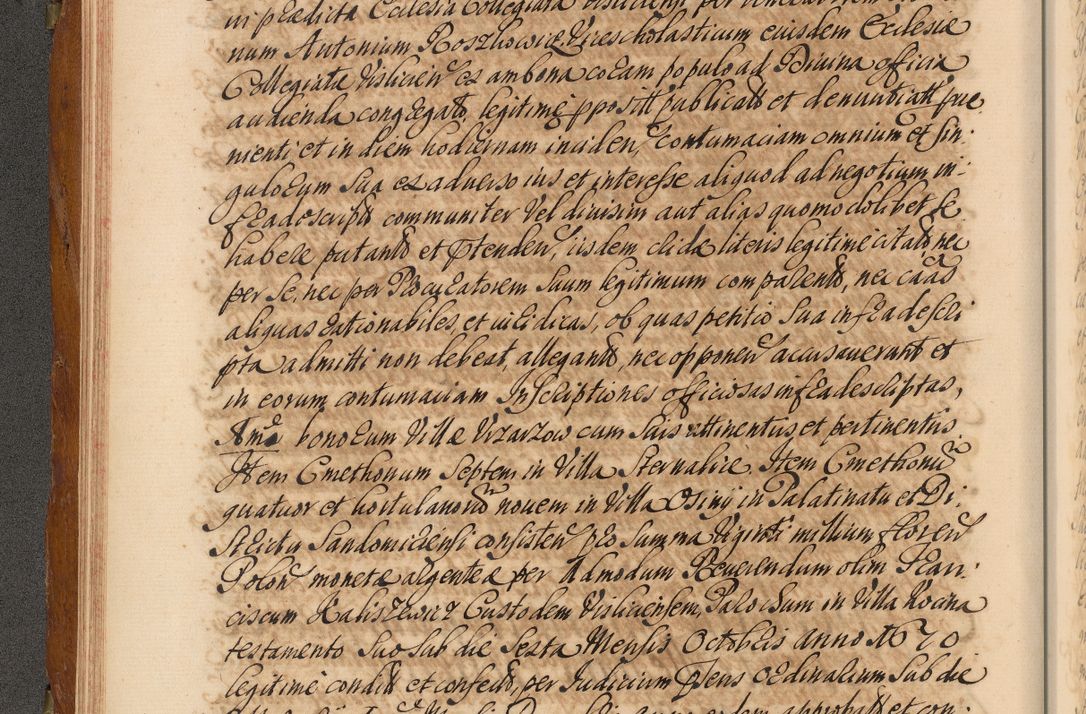 in praedicta Ecclesia Collegiata Visliciensi per
num Antonium Roszkowic Vicescholasticum eiusdem Ecclesiæ
Collegiatæ Visliciens ex ambona coram populo ad Divina officia
audienda congregato, legitime ppositt publicatt et denuntiatt prove
nienti, et in diem hodiernam inciden, contumaciam omnium et sin.
gulorum Sua ex adverso ius et interesse aliquod ad negotium in.
fra descript communiter vel divisim aut alias quomodolibet se
habere putant et Ptenden, iisdem clide literis legitime citat nec
per se, nec per Procuratorem Suum legitimum comparent, nec caas
aliquas rationabiles, et iuridicas, ob quas petitio Sua infra descri
pta admitti non debeat, allegant, nec opponen accusaverunt et
in eorum contumaciam Inscriptiones officiosas infra descriptas,
bonorum Villæ Vrzarzow cum Suis attinentiis et pertinentiis
Item Cmethonum Septem in Villa Sternalice Item Cmethonu
quatuor et hortulanoru novem in Villa Osiny in Palatinatu et Di.
strictu Sandomiriensi consisten pro Summa Viginti millium floren
Polon monetæ argenteæ per Admodum Reverendum olim Fran.
ciscum Kaliszewicz Custodem Visliciensem, Parochum in Villa
testamento Suo Sub die Sexta Mensis Octobris anno 1670
legitime condit et confect, per Iudicium Pfens Ordinarium Sub die
approbatt et con.